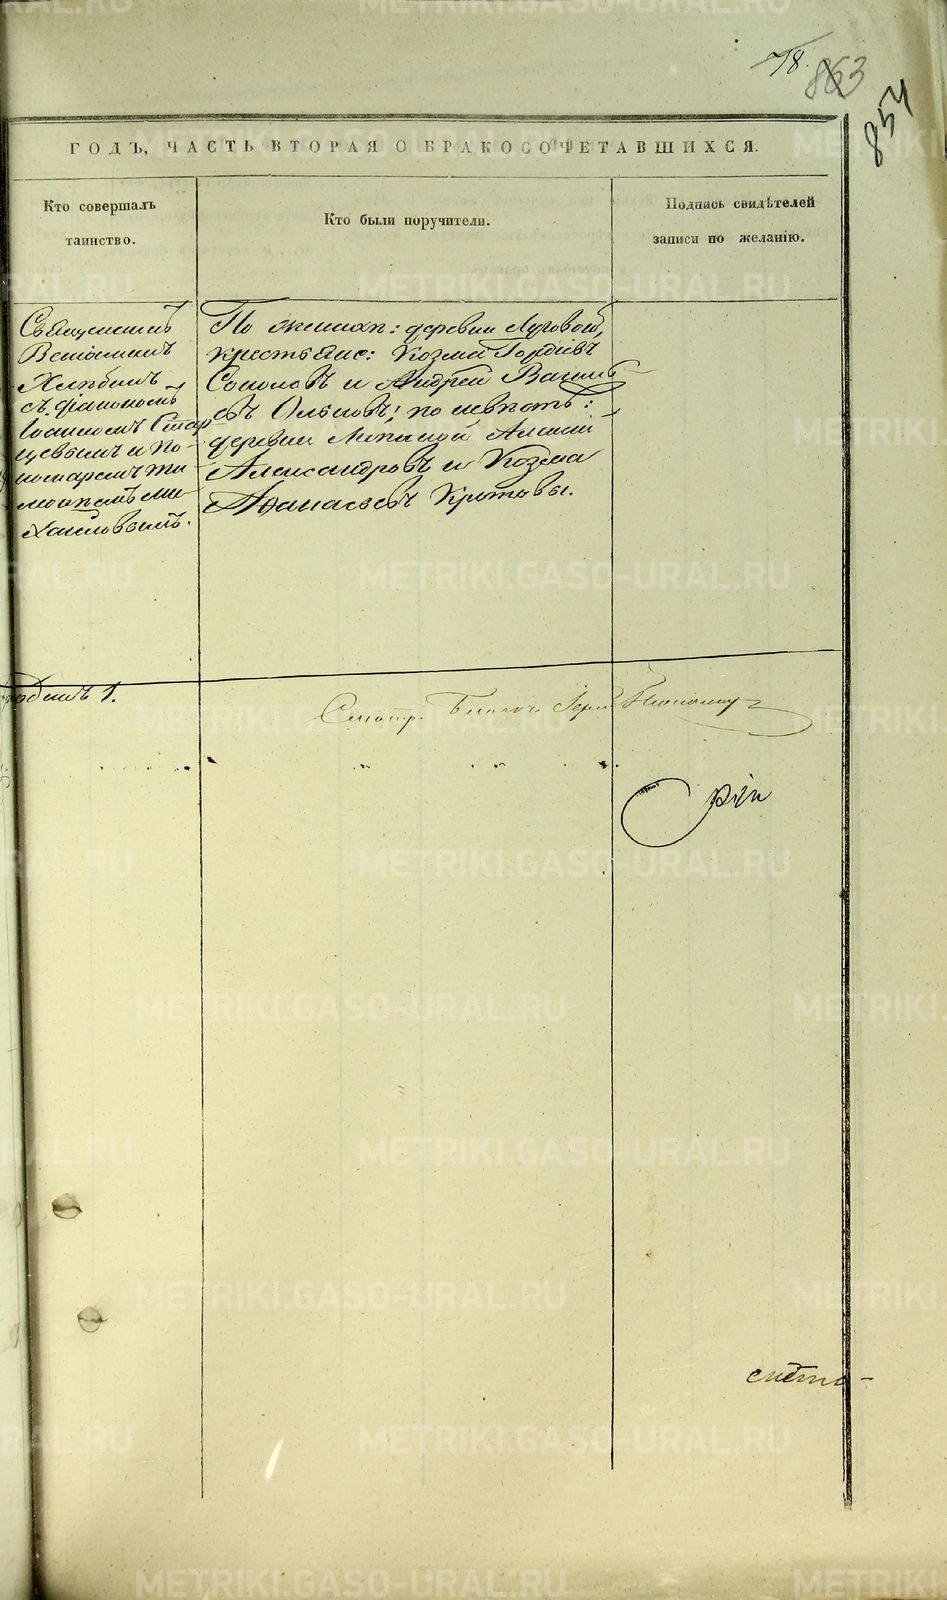 78.
863
854
ГОДЪ, ЧАСТЬ ВТОРАЯ О БРАКОСОЧЕТАВШИХСЯ.
Кто совершалъ
таинство.
Кто были поручители.
Подпись свидѣтелей
записи по желанію.
Священникъ
Веніаминъ
Хлѣбинъ
съ діакономъ
Іоанномъ Стар
цевымъ и по-
номаремъ Ти
моѳеемъ Ми
хайловымъ.
По женихѣ: деревни Луговой,
крестьяне: Козма Гордѣевъ
Соколовъ и Андрей Василь-
евъ Ольковъ; по невѣстѣ:
деревни Липиной Алексѣй
Александровъ и Козма
Аѳанасьевъ Кротовы.
одинъ 1.
Смотр.
METRIKI.GASO-URAL.RU